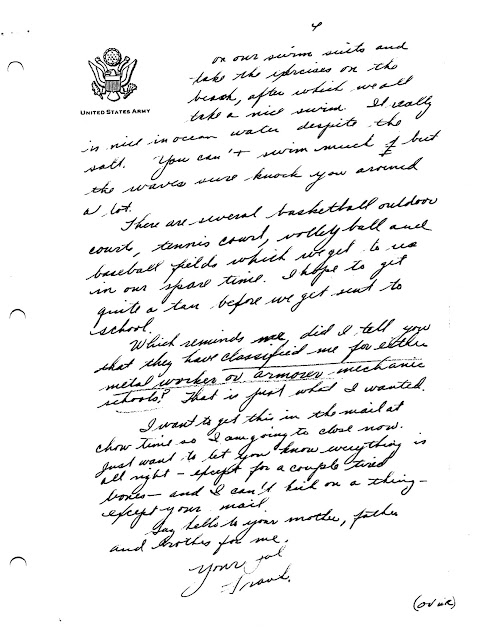 4
UNITED STATES ARMY
on our swim suits and
take the exercises on the
beach, after which we all
take a nice swim. It really
is nice in ocean water despite the
salt. You can't swim much but
the waves sure knock you around
a lot.
There are several basketball outdoor
courts, tennis court, volley ball and
baseball fields which we get to use
in our spare time. I hope to get
quite a tan before we get sent to
school.
Which reminds me, did I tell you
that they have classified me for either
metal worker or armorer mechanic
schools? That is just what I wanted.
I want to get this in the mail at
chow time so I am going to close now.
Just want to let you know everything is
all right – except for a couple tired
bones – and I can't kick on a thing –
except your mail.
Say hello to your mother, father
and brother for me.
Your pal
Frank.
(OVER)